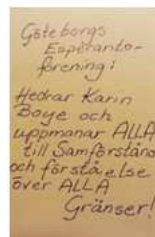 Göteborgs
Esperanto-
förening:
Hedrar Karin
Boye och
uppmanar ALLA
till Samförstånd
och förståelse
över ALLA
Gränser!